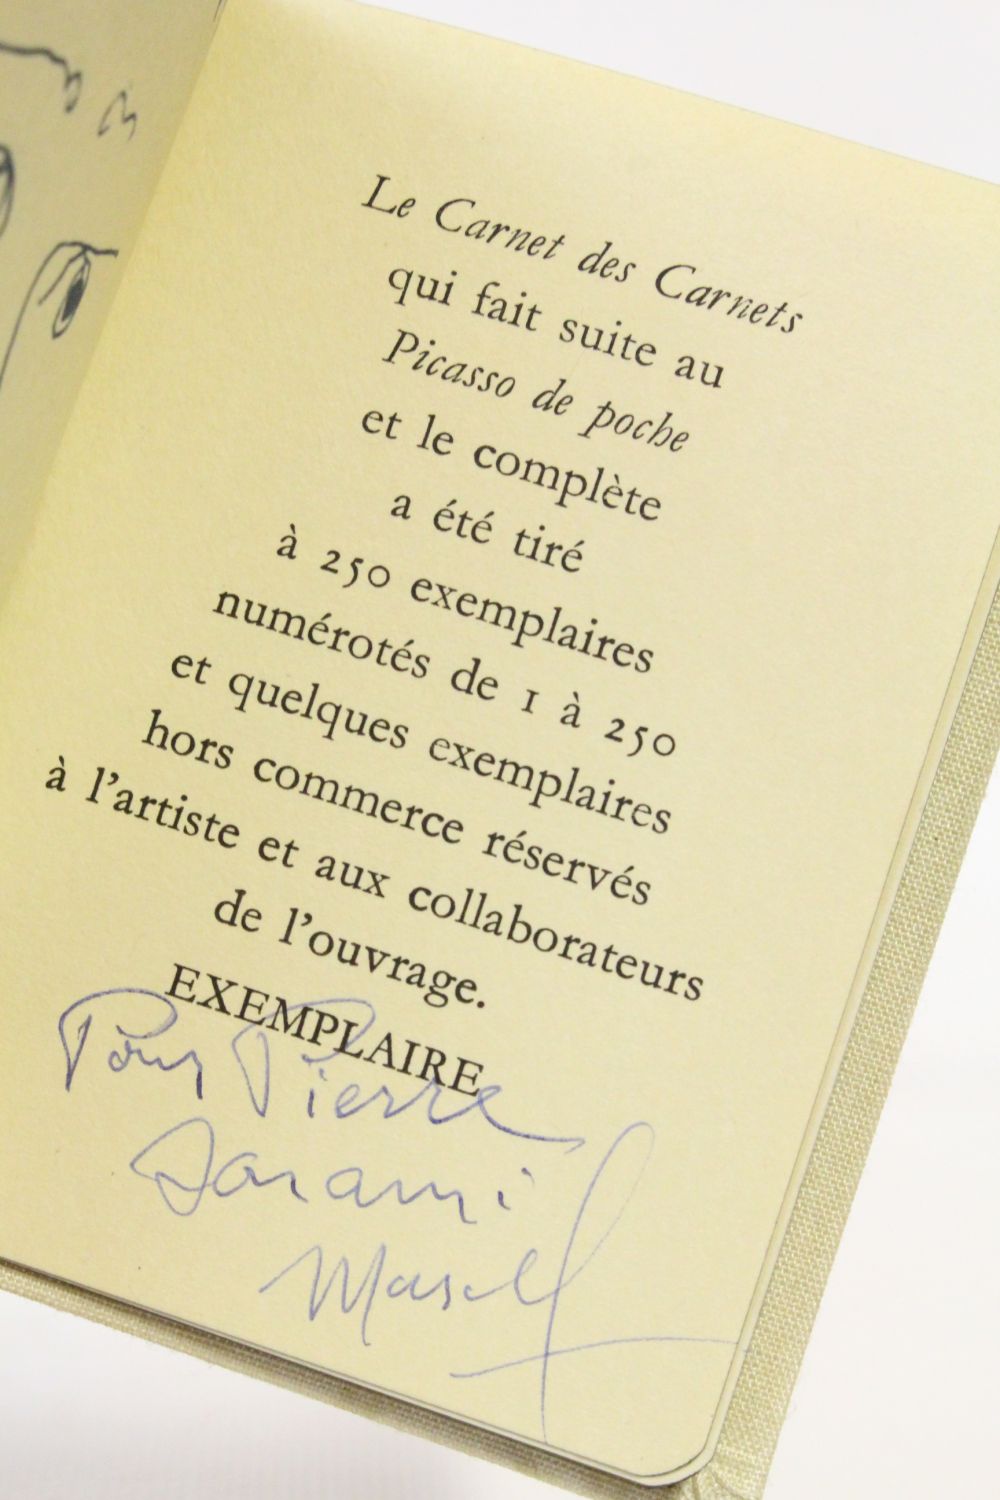 Le Carnet des Carnets
qui fait suite au
Picasso de poche
et le complète
a été tiré
à 250 exemplaires
numérotés de 1 à 250
et quelques exemplaires
hors commerce réservés
à l'artiste et aux collaborateurs
de l'ouvrage.
EXEMPLAIRE
Pour Pierre